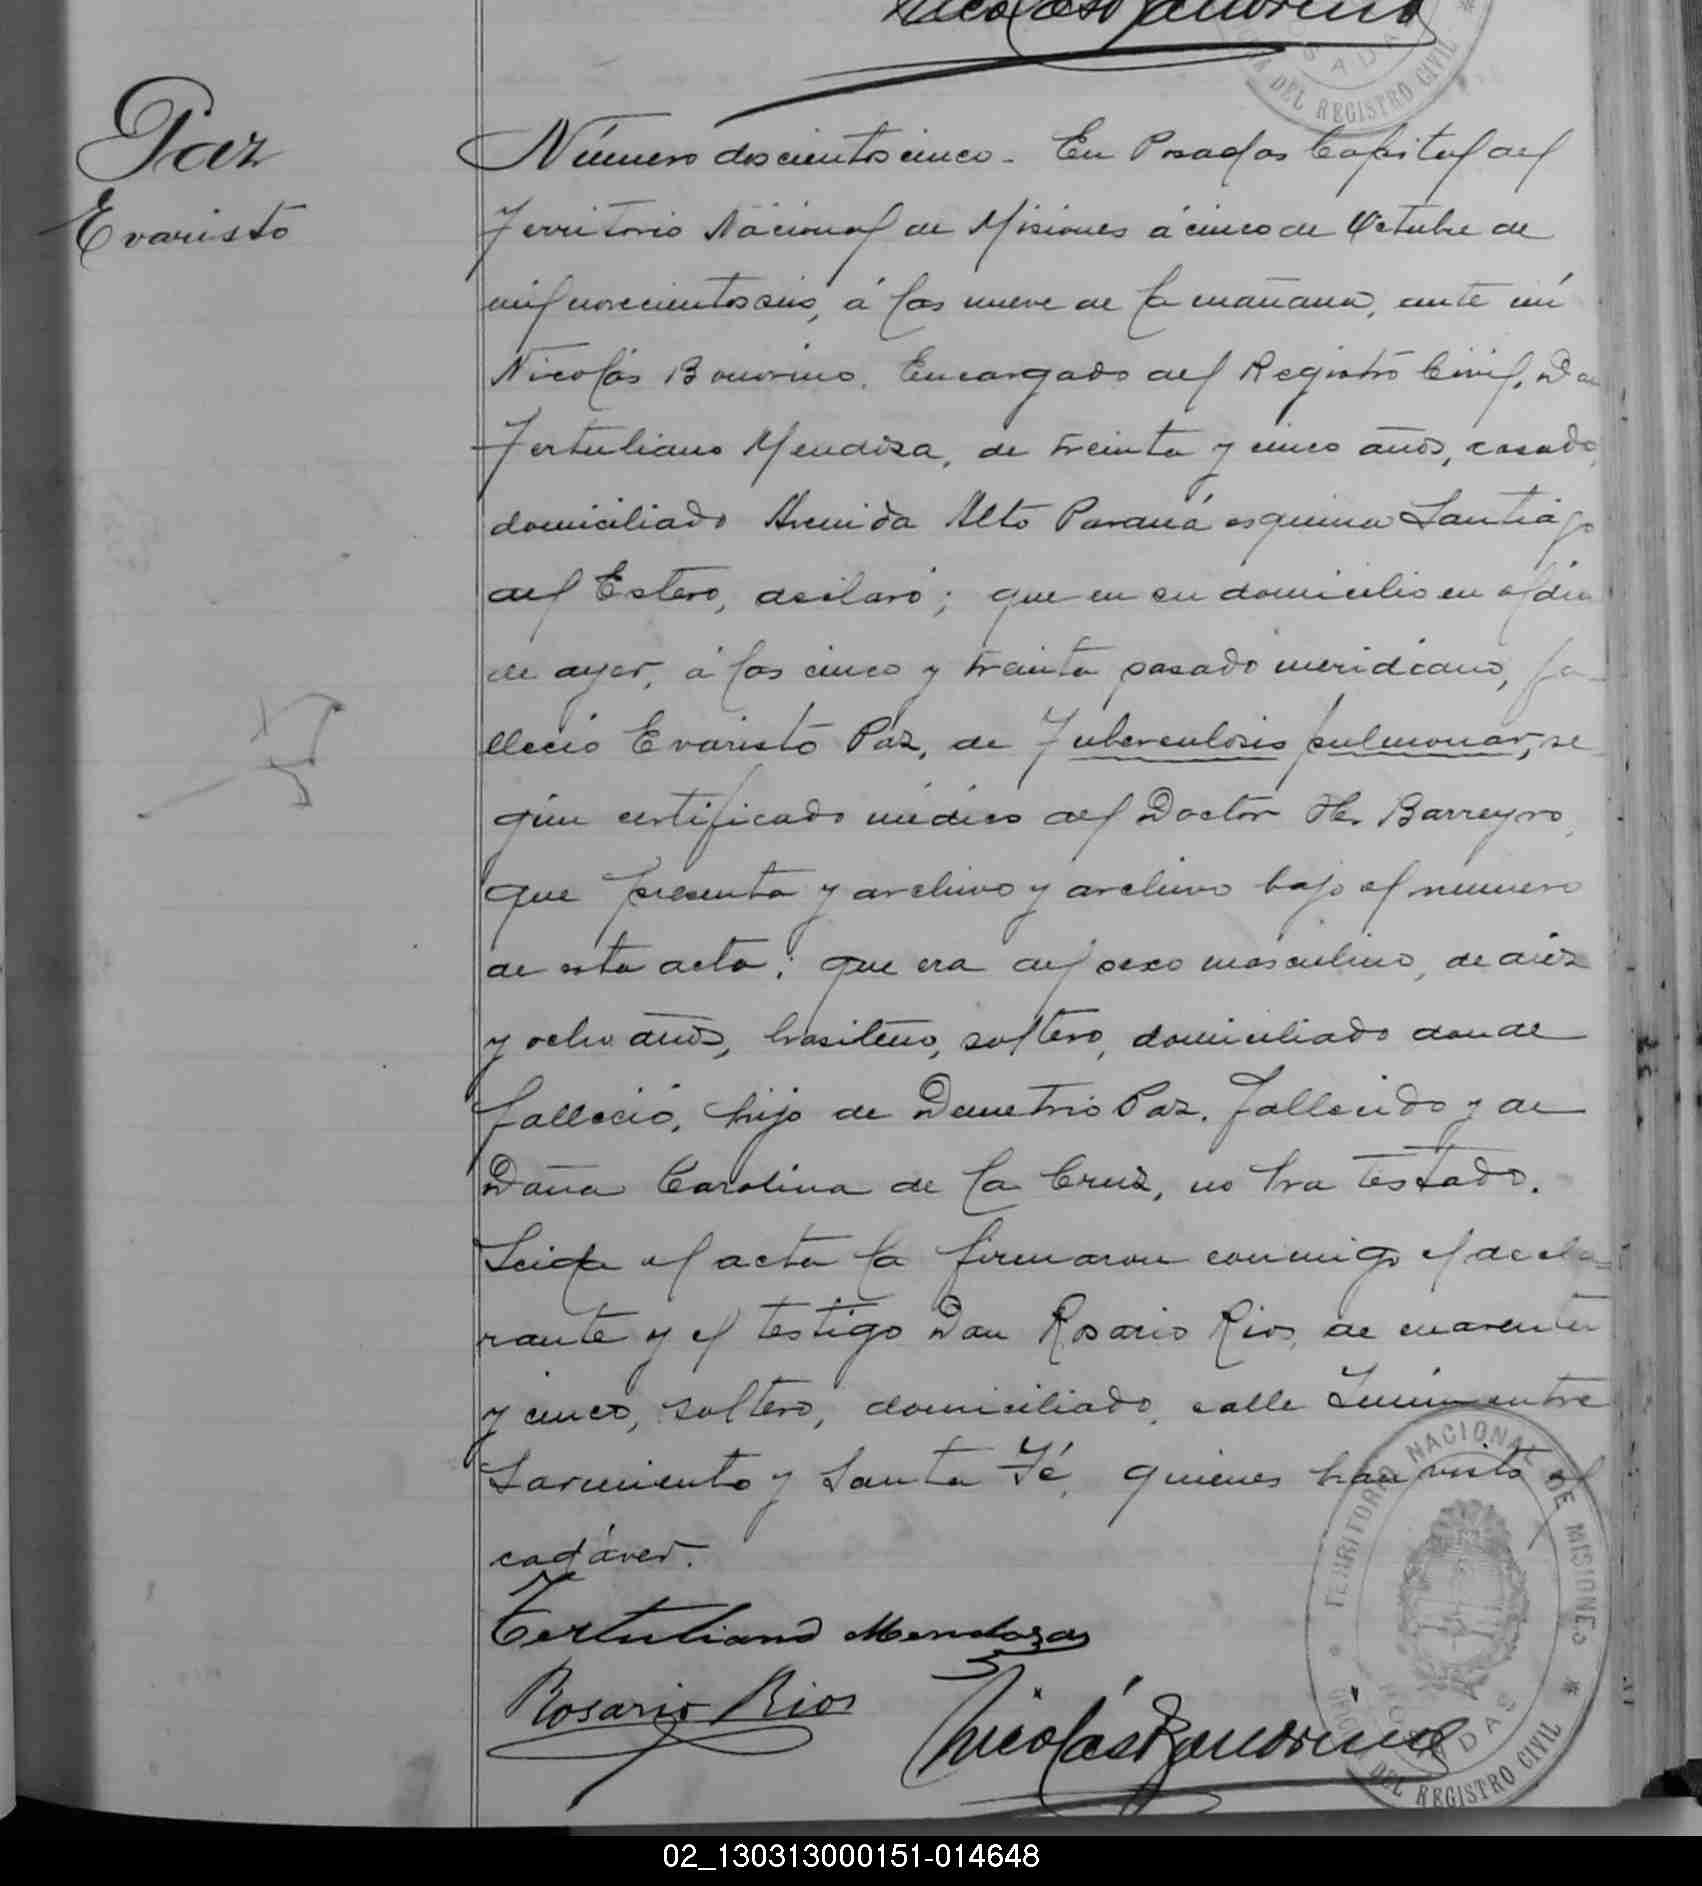 Nicolás Bonorino
DEL REGISTRO CIVIL
Paz
Evaristo
Número doscientos cinco. En Posadas Capital del
Territorio Nacional de Misiones á cinco de Octubre de
mil novecientos seis, á las nueve de la mañana, ante mí
Nicolás Bonorino, Encargado del Registro Civil, Don
Tertuliano Mendoza, de treinta y cinco años, casado,
domiciliado Avenida Alto Paraná esquina Santiago
del Estero, declaró; que en su domicilio en el día
de ayer, á las cinco y treinta pasado meridiano, fa-
lleció Evaristo Paz, de Tuberculosis pulmonar, se-
gún certificado médico del Doctor H. Barreyro,
que presenta y archivo y archivo bajo el numero
de esta acta; que era del sexo masculino, de diez
y ocho años, brasileno, soltero, domiciliado donde
falleció, hijo de Demetrio Paz, fallecido y de
Doña Carolina de la Cruz, no ha testado.
Leida el acta la firmaron conmigo el decla-
rante y el testigo Don Rosario Rios, de cuarenta
y cinco, soltero, domiciliado, calle Junin entre
Sarmiento y Santa Fé, quienes han visto el
cadáver.
Tertuliano Mendoza
Rosario Rios
Nicolás Bonorino
TERRITORIO NACIONAL DE MISIONES
POSADAS
DEL REGISTRO CIVIL
02_130313000151-014648